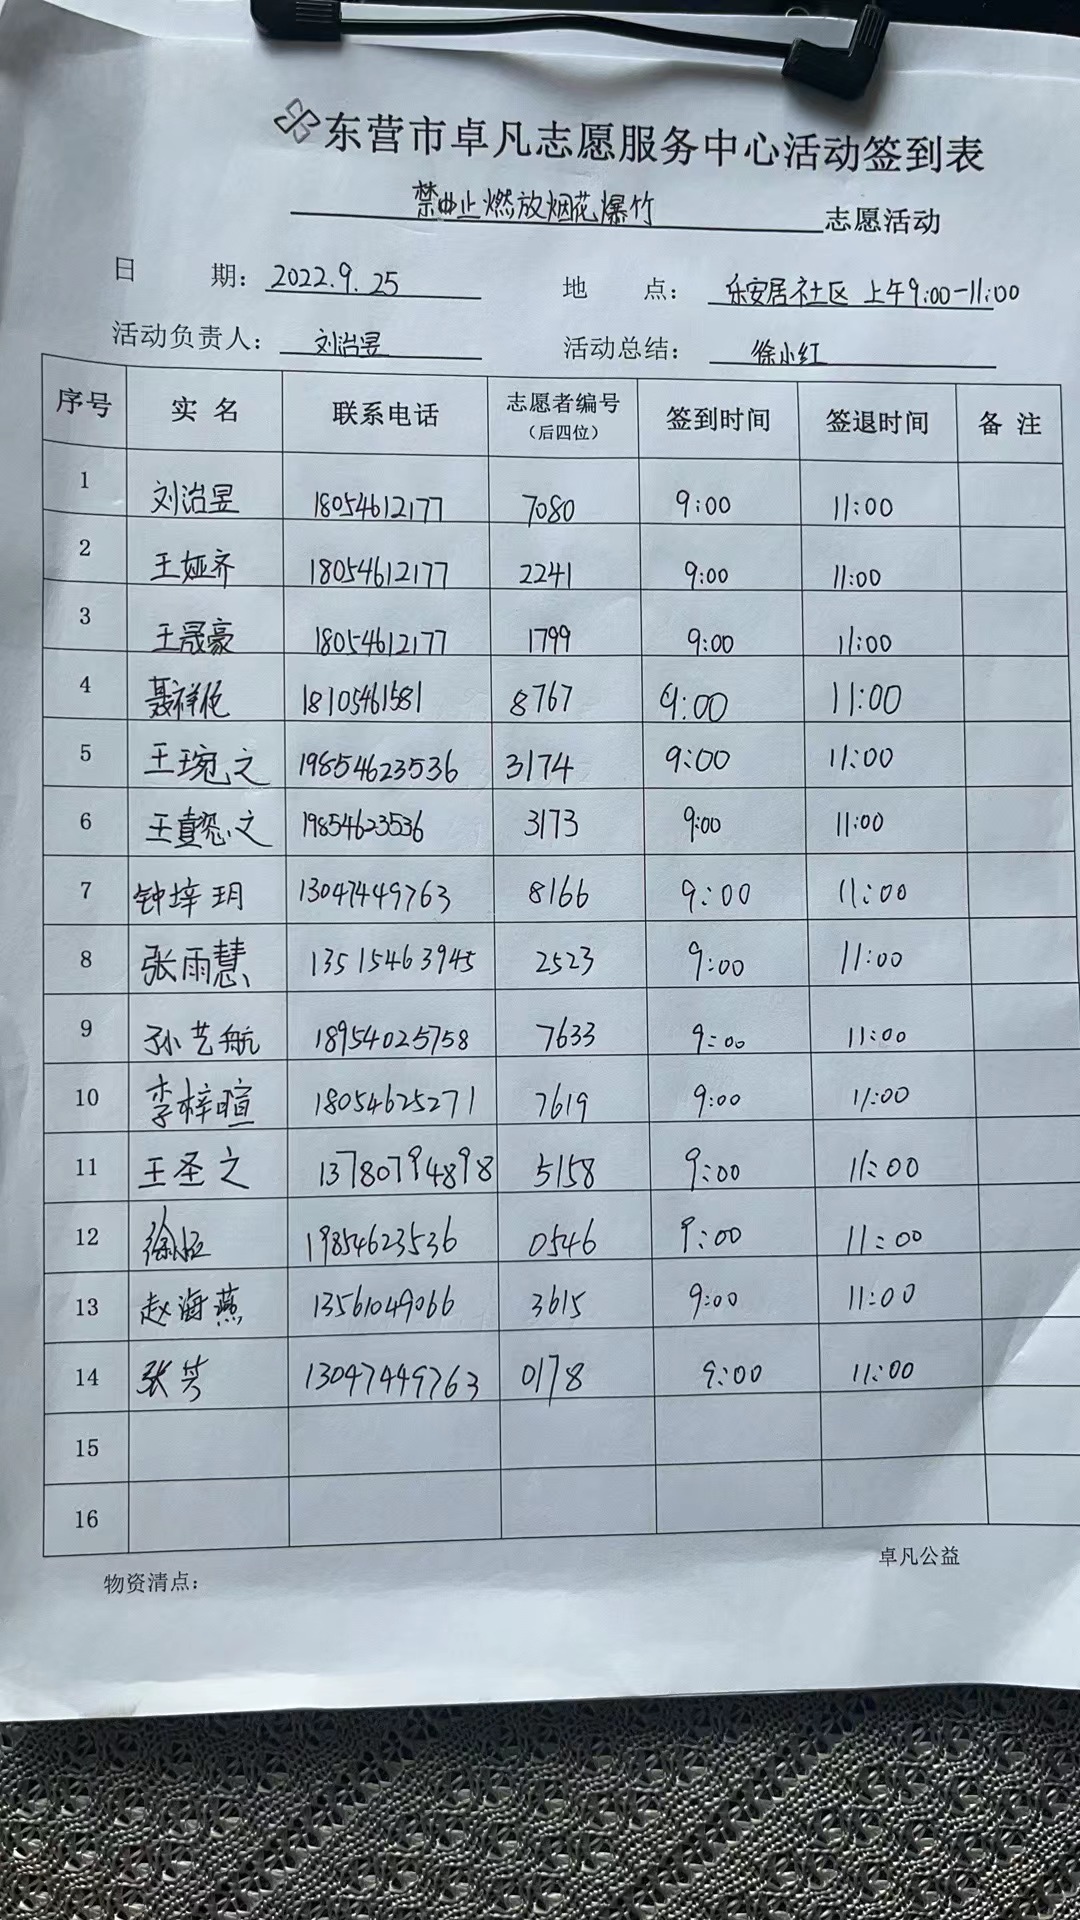 东营市卓凡志愿服务中心活动签到表
禁止燃放烟花爆竹 志愿活动
日 期：2022.9.25 地 点：乐安居社区 上午9:00-11:00
活动负责人：刘治昱 活动总结：徐小红
序号 实 名 联系电话 志愿者编号（后四位） 签到时间 签退时间 备 注
1 刘治昱 18054612177 7080 9:00 11:00
2 王娅齐 18054612177 2241 9:00 11:00
3 王晟豪 18054612177 1799 9:00 11:00
4 聂祥 18105461581 8767 9:00 11:00
5 王琬之 19854623536 3174 9:00 11:00
6 王懿之 19854623536 3173 9:00 11:00
7 钟梓玥 13047449763 8166 9:00 11:00
8 张雨慧 13515463945 2523 9:00 11:00
9 孙艺航 18954025758 7633 9:00 11:00
10 李梓暄 18054625271 7619 9:00 11:00
11 王圣之 13780794898 5158 9:00 11:00
12 徐 19854623536 0546 9:00 11:00
13 赵海燕 13561049066 3615 9:00 11:00
14 张 13047449763 0178 9:00 11:00
15
16
卓凡公益
物资清点：